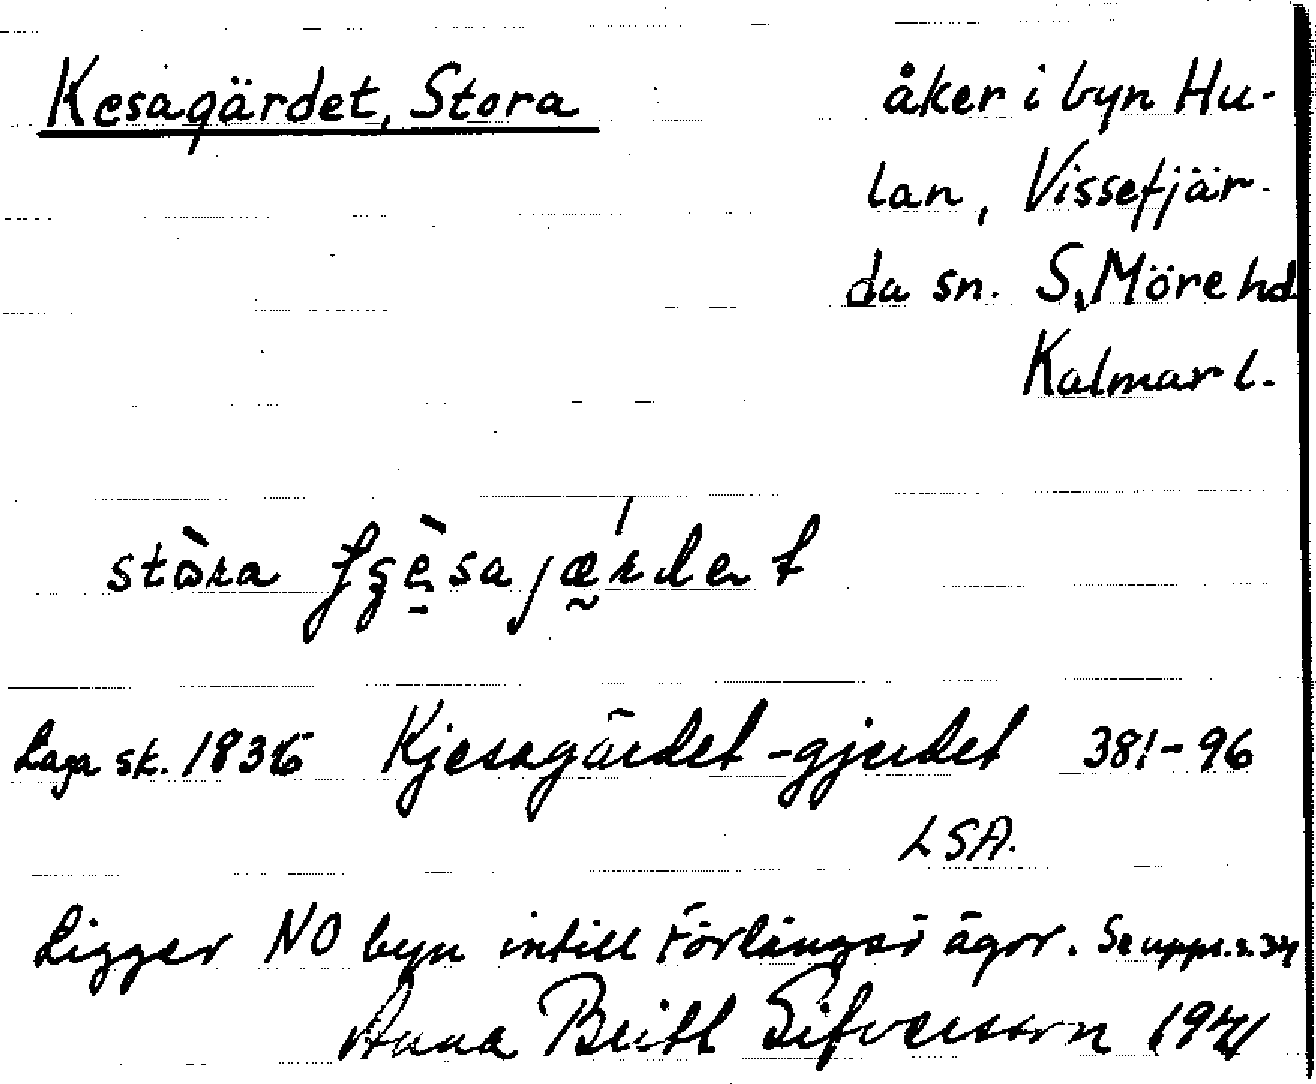 Kesagärdet, Stora
åker i byn Hu-
lan, Vissefjär-
da sn. S. Möre hd.
Kalmar l.
stòra
Laga sk. 1836 Kjesagärdet -gjerdet 381-96
LSA.
Ligger NO byn intill Förlångsö ägor. Se upps. s. 34
Anna Britt Sifversson 1941